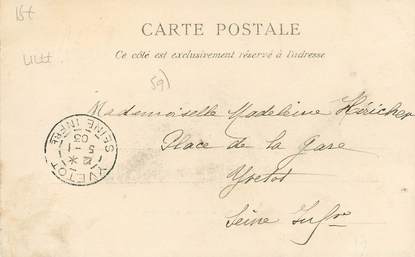 15+
CARTE POSTALE
Ce côté est exclusivement réservé à l'adresse
59)
Mademoiselle Madeleine Héricher
Place de la Gare
Yvetot
Seine Infre
YVETOT
SEINE INFRE
5 - 1
03